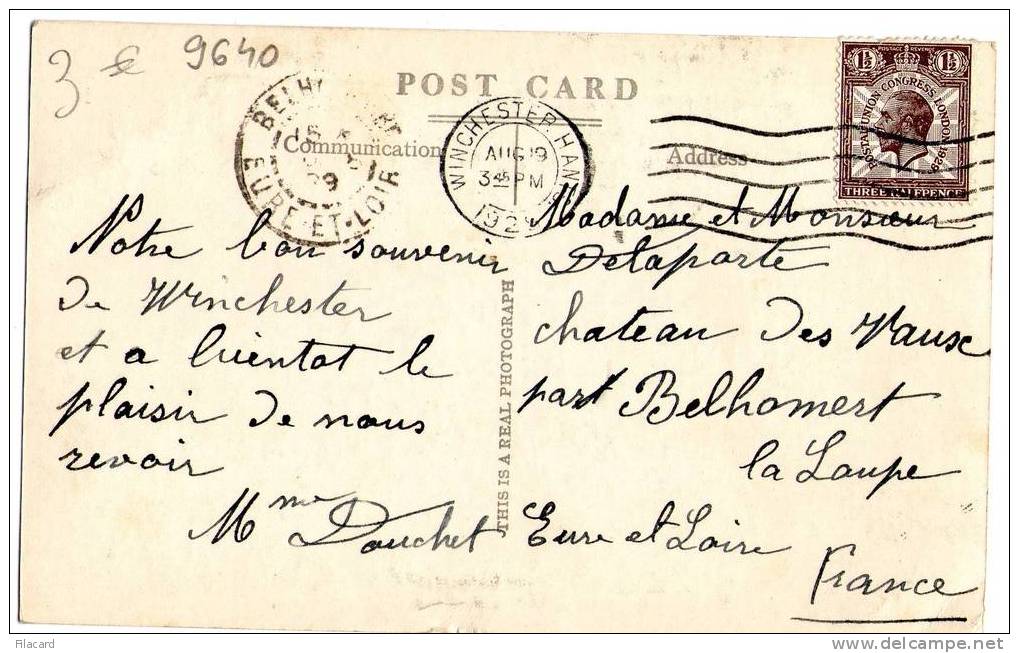 3 9640
POST CARD
Communication
Address
BELHOMERT
EURE-ET-LOIR
WINCHESTER, HANTS
AUG 19
3 45 PM
1929
1½ POSTAGE REVENUE 1½
POSTAL UNION CONGRESS LONDON 1929
THREE HALFPENCE
Notre bon souvenir
de Winchester
et a bientot le
plaisir de nous
revoir
Mme Douchet
THIS IS A REAL PHOTOGRAPH
Madame et Monsieur
Delaporte
chateau des Vaux
part Belhomert
la Loupe
Eure et Loire
France
Filacard
www.delcampe.net